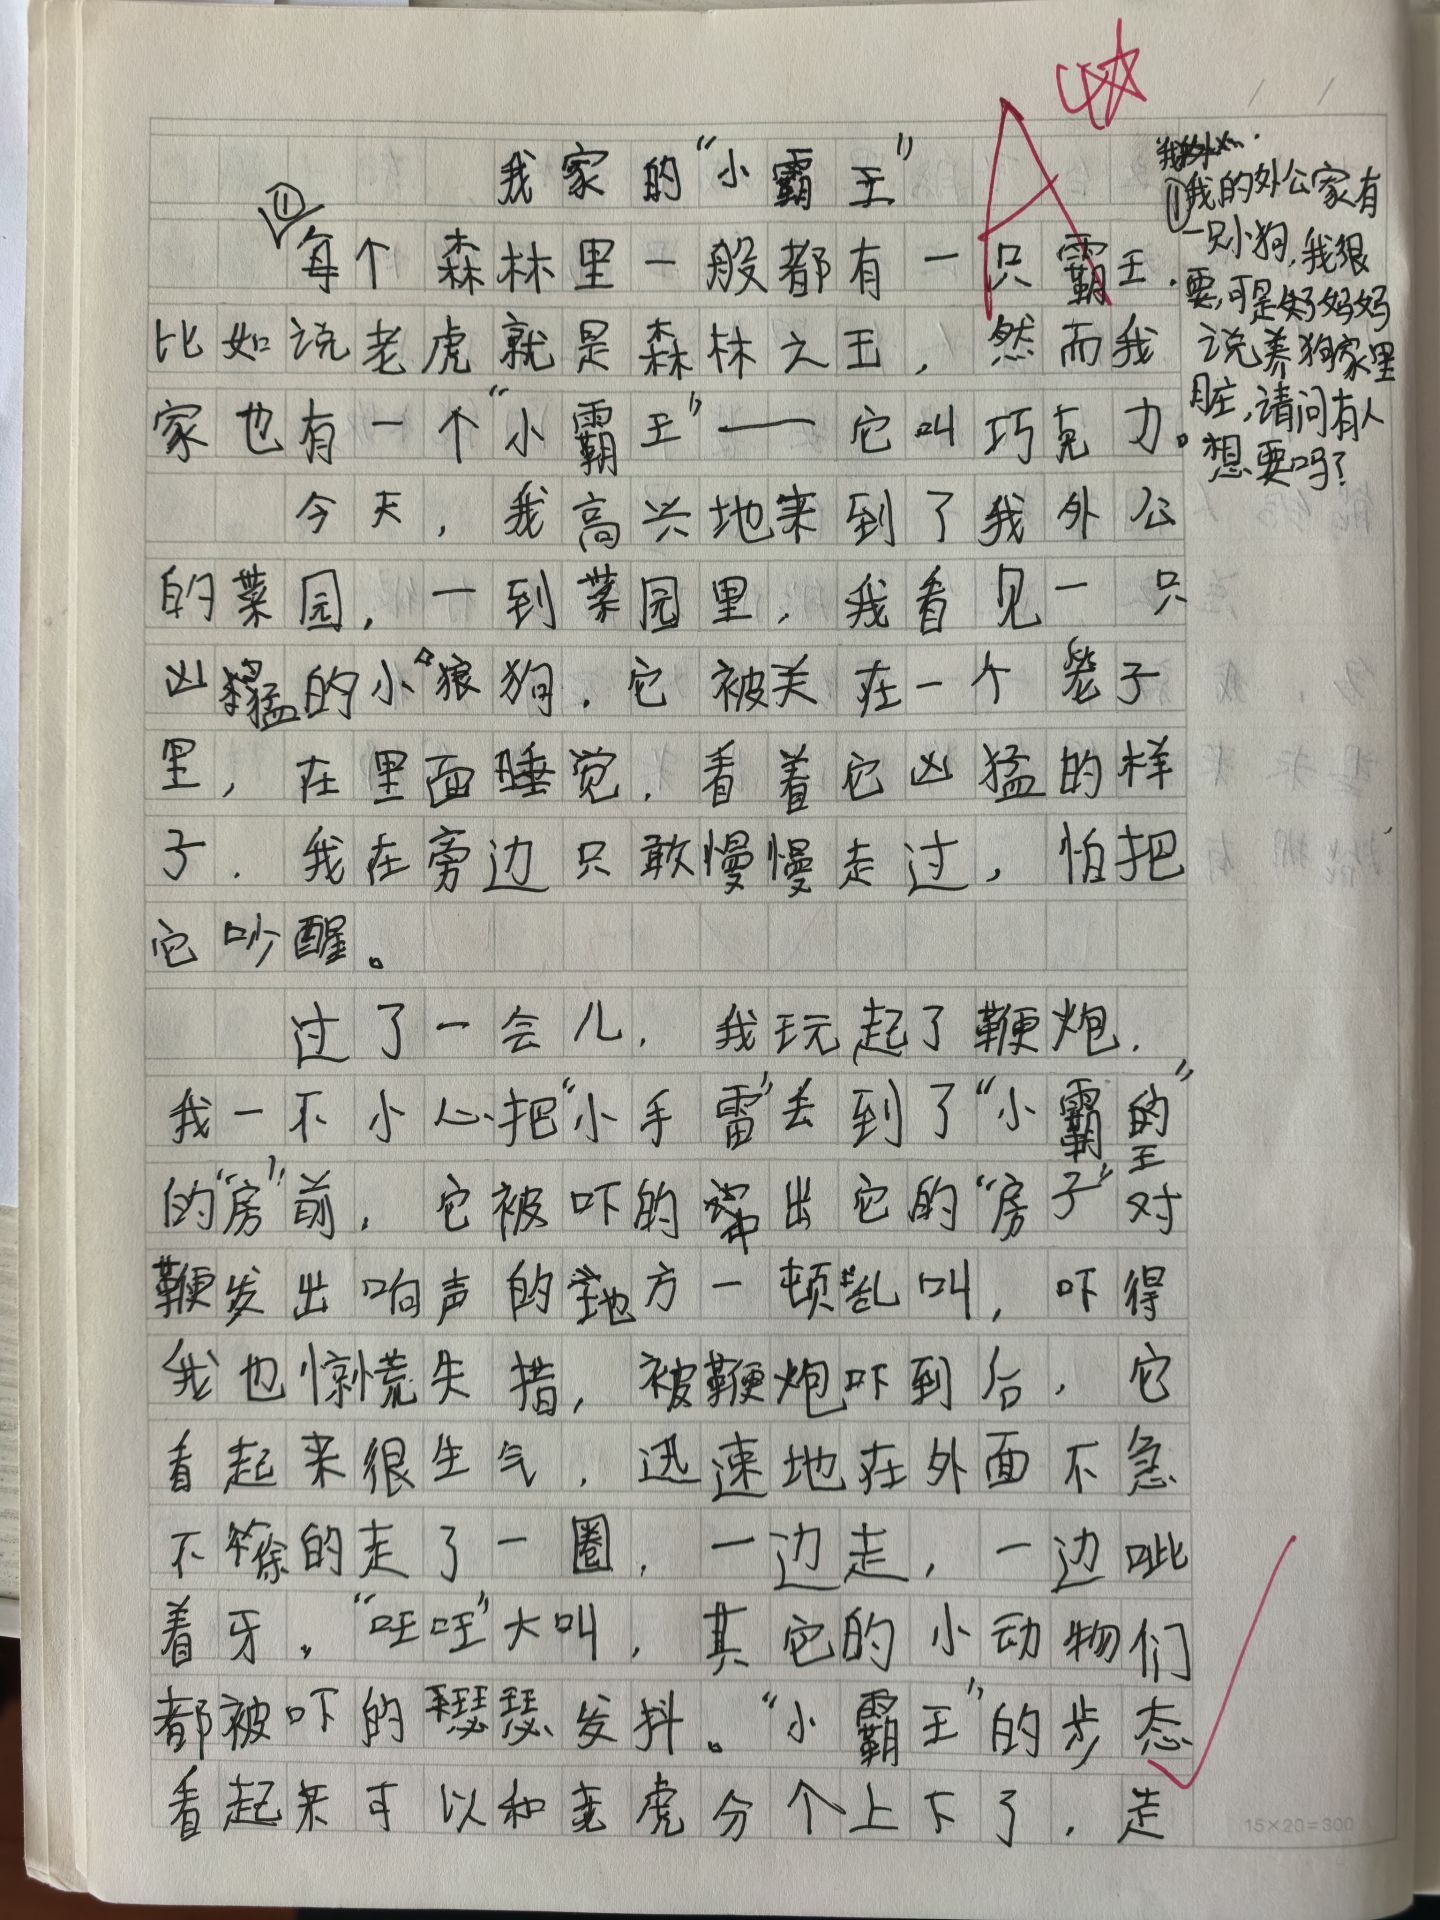 我家的“小霸王”
①
每个森林里一般都有一只霸王.
比如说老虎就是森林之王，然而我
家也有一个“小霸王”——它叫巧克力。
今天，我高兴地来到了我外公
的菜园，一到菜园里，我看见一只
凶猛的小狼狗.它被关在一个笼子
里，在里面睡觉.看着它凶猛的样
子.我在旁边只敢慢慢走过，怕把
它吵醒。
过了一会儿.我玩起了鞭炮.
我一不小心把“小手雷”丢到了“小霸王”的
的“房”前.它被吓的窜出它的“房子”对
鞭发出响声的地方一顿乱叫，吓得
我也惊慌失措，被鞭炮吓到后.它
看起来很生气，迅速地在外面不急
不徐的走了一圈.一边走，一边呲
着牙。“旺旺”大叫，其它的小动物们
都被吓的瑟瑟发抖。“小霸王”的步态
看起来可以和老虎分个上下了.走
①我的外公家有
一只小狗，我很
要，可是妈妈
说养狗家里
脏，请问有人
想要吗？
A
15×20=300